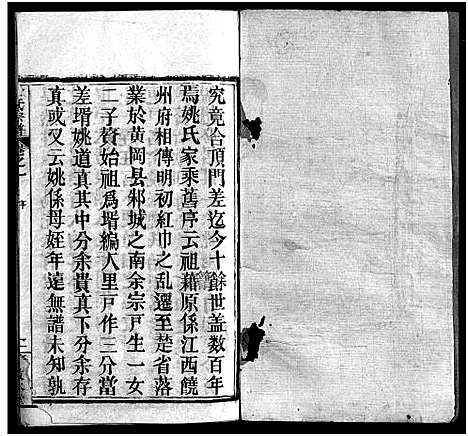 究竟合頂門差迄今十餘世盖數百年
焉姚氏家乘舊序云祖藉原係江西饒
州府相傳明初紅巾之乱遷至楚省落
業於黄岡县邾城之南余宗戸生一女
二子贅始祖爲壻編入里戸作三分當
差壻姚道真其中分余貴真下分余存
真或又云姚係母姪年逺無譜未知孰